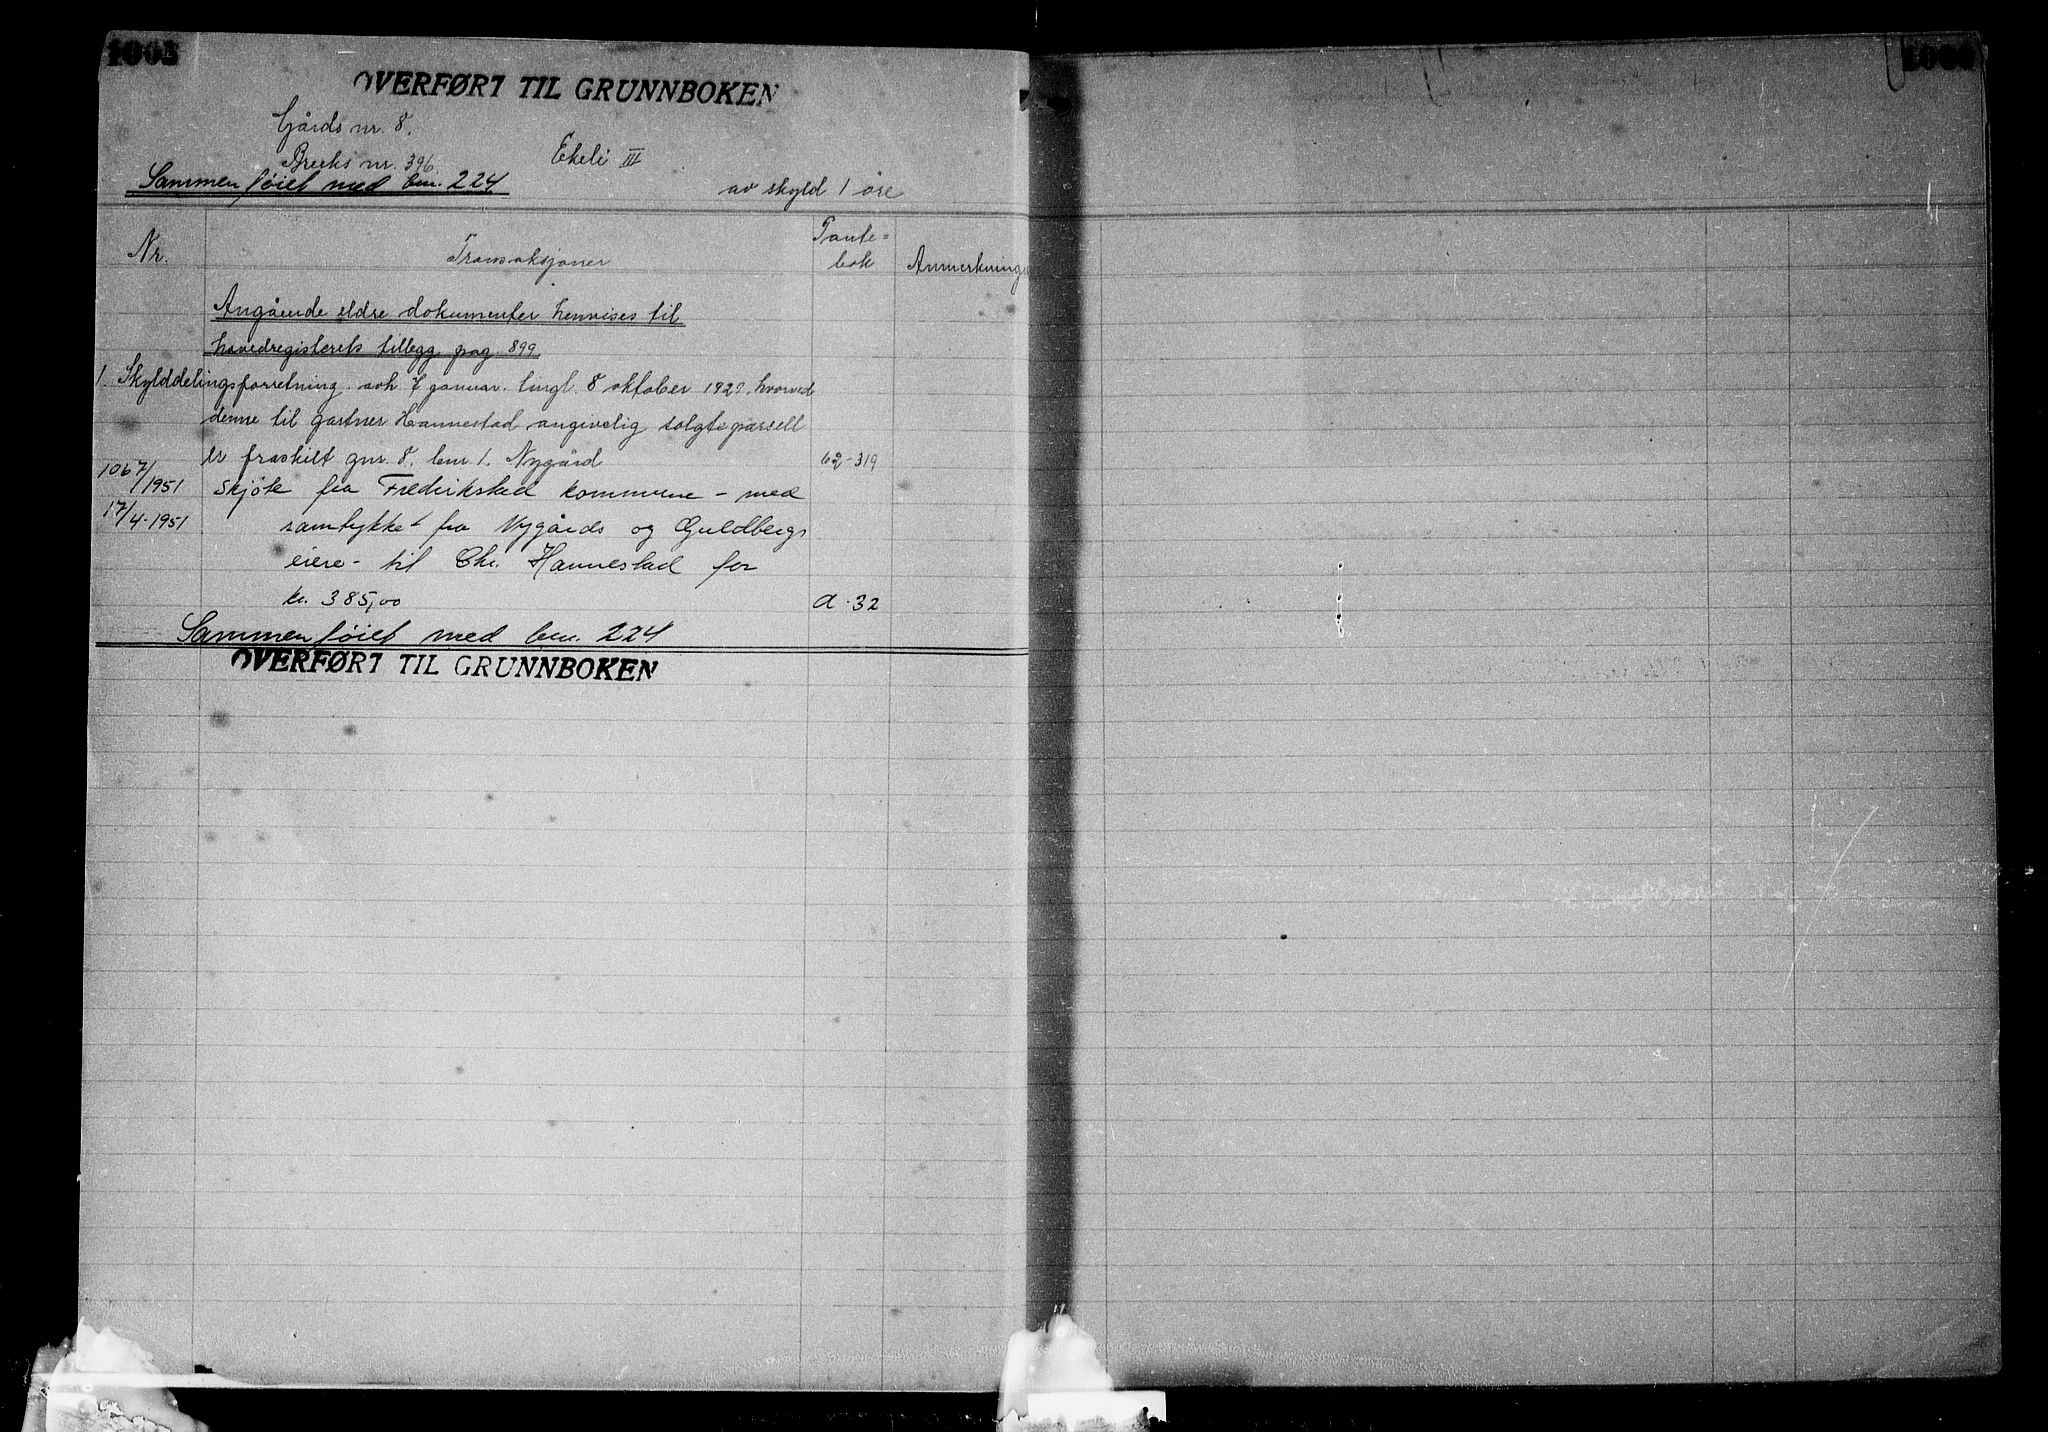 1003
OVERFØRT TIL GRUNNBOKEN
Gårds nr. 8.
Bruks nr. 396. Ekeli III
Sammenføiet med bnr. 224
av skyld 1 øre
Nr. Transaksjoner Pante=bok Anmerkninger
Angående eldre dokumenter henvises til
hovedregisterets tillegg pag. 899
1. Skylddelingsforretning avh. 7 januar. tingl. 8 oktober 1929. hvorved
denne til gartner Hannestad angivelig solgte parsell
er fraskilt gnr. 8, bnr 1. Nygård 62-319
1067/1951 Skjøte fra Fredrikstad kommune - med
17/4-1951 samtykke fra Nygårds og Guldbergs
eiere - til Chr. Hannestad for
kr. 385,00 A-32
Sammenføiet med bnr. 224
OVERFØRT TIL GRUNNBOKEN